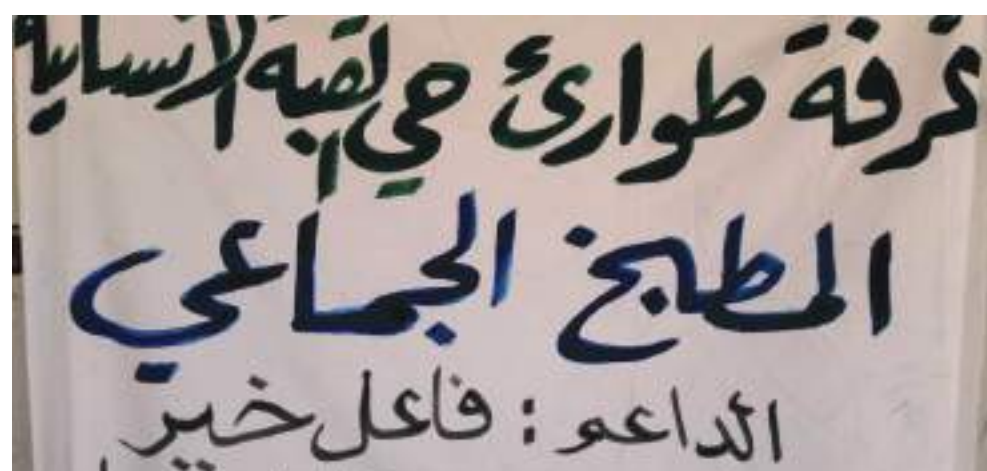 غرفة طوارئ حي لقبه الانسانية
المطبخ الجماعي
الداعم : فاعل خير